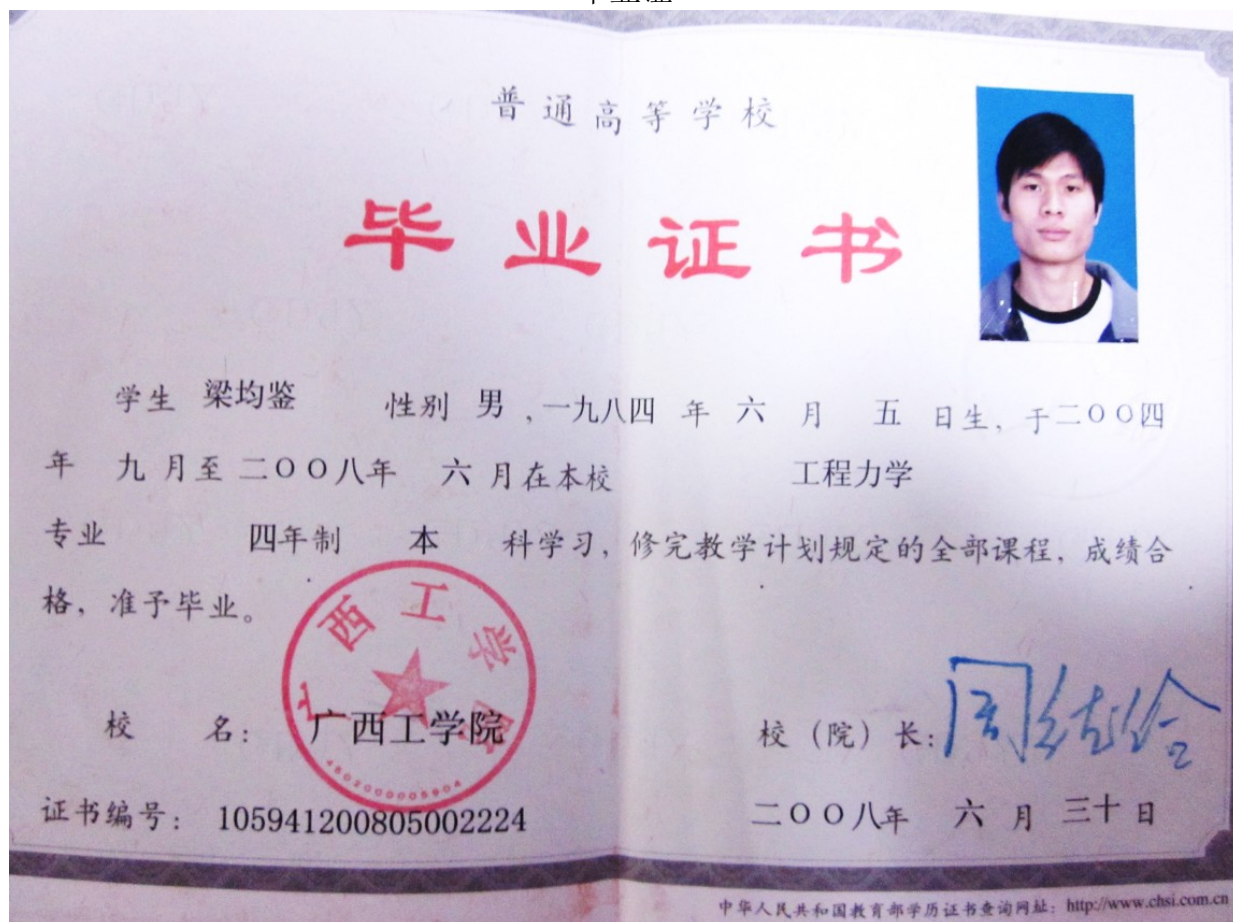 毕业证
普通高等学校
毕业证书
学生 梁均鉴 性别 男 ,一九八四 年 六 月 五 日生, 于二〇〇四
年 九 月至 二〇〇八年 六 月在本校 工程力学
专业 四年制 本 科学习, 修完教学计划规定的全部课程, 成绩合
格, 准予毕业。
广西工学院
校 名: 广西工学院 校 (院) 长:
4502000005904
证书编号: 105941200805002224 二〇〇八年 六 月 三十 日
中华人民共和国教育部学历证书查询网址: http://www.chsi.com.cn